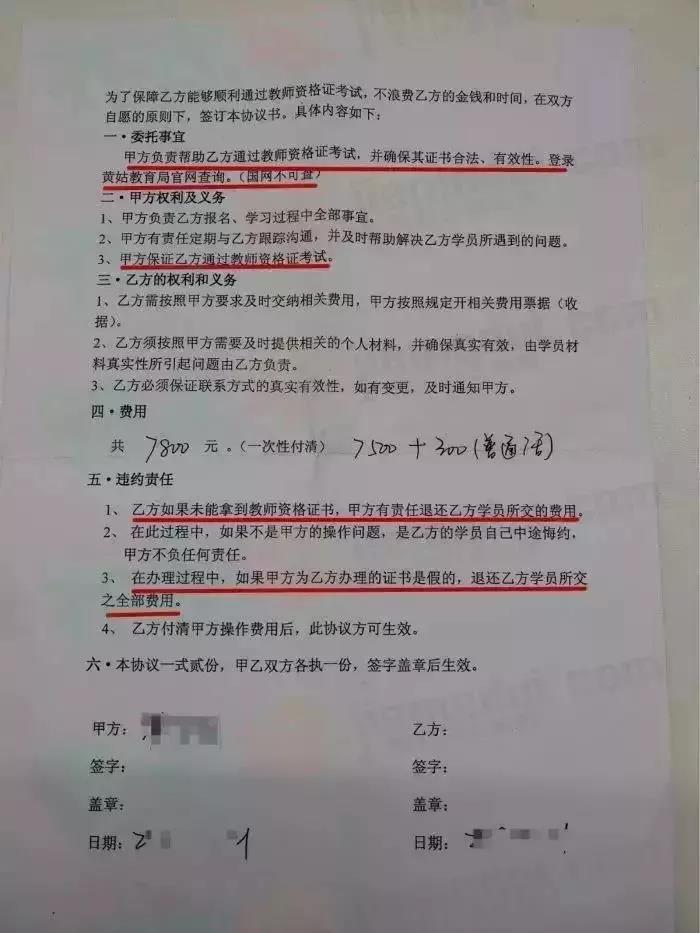 为了保障乙方能够顺利通过教师资格证考试，不浪费乙方的金钱和时间，在双方
自愿的原则下，签订本协议书。具体内容如下：
一·委托事宜
甲方负责帮助乙方通过教师资格证考试，并确保其证书合法、有效性。登录
黄姑教育局官网查询。（国网不可查）
二·甲方权利及义务
1、甲方负责乙方报名、学习过程中全部事宜。
2、甲方有责任定期与乙方跟踪沟通，并及时帮助解决乙方学员所遇到的问题。
3、甲方保证乙方通过教师资格证考试。
三·乙方的权利和义务
1、乙方需按照甲方要求及时交纳相关费用，甲方按照规定开相关费用票据（收
据）。
2、乙方须按照甲方需要及时提供相关的个人材料，并确保真实有效，由学员材
料真实性所引起问题由乙方负责。
3、乙方必须保证联系方式的真实有效性，如有变更，及时通知甲方。
四·费用
共 7800 元。（一次性付清） 7500+300(普通话)
五·违约责任
1、 乙方如果未能拿到教师资格证书，甲方有责任退还乙方学员所交的费用。
2、 在此过程中，如果不是甲方的操作问题，是乙方的学员自己中途悔约，
甲方不负任何责任。
3、 在办理过程中，如果甲方为乙方办理的证书是假的，退还乙方学员所交
之全部费用。
4、 乙方付清甲方操作费用后，此协议方可生效。
六·本协议一式贰份，甲乙双方各执一份，签字盖章后生效。
甲方： 乙方：
签字： 签字：
盖章： 盖章：
日期：2 1 日期：